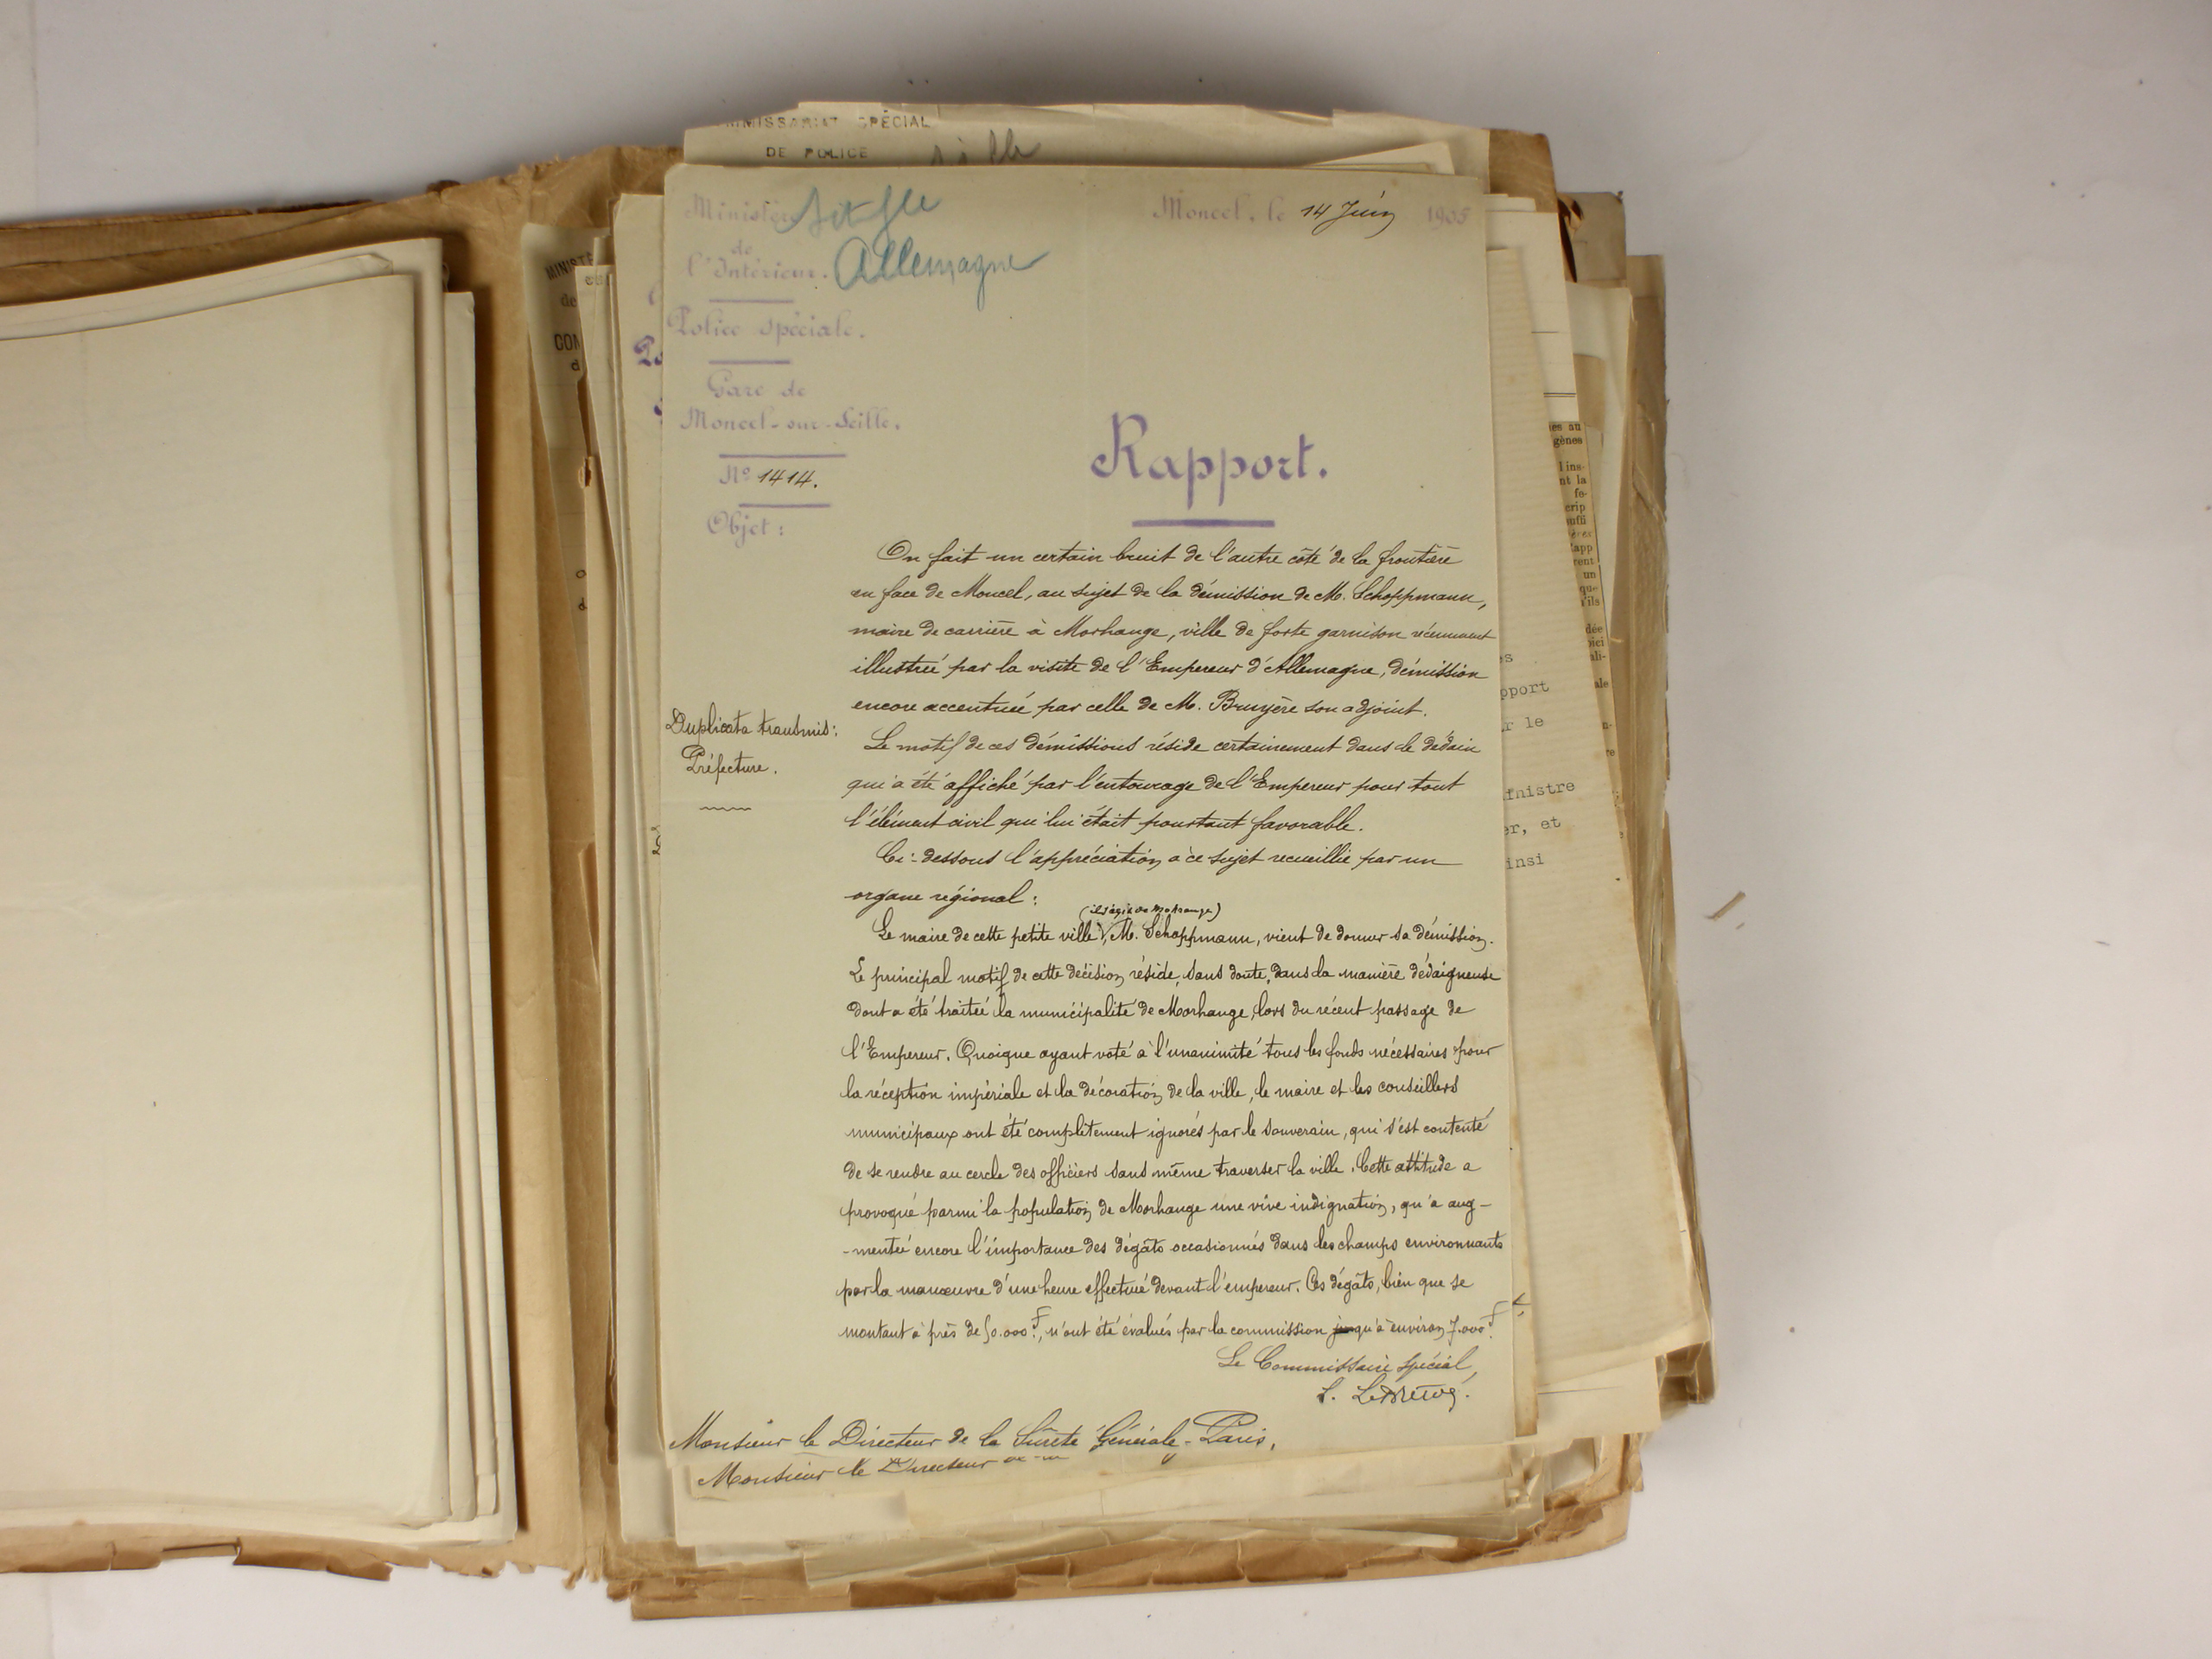 SPÉCIAL
DE POLICE
Ministère
de
l'Intérieur.
Allemagne
Police Spéciale.
Gare de
Moncel-sur-Seille.
N° 1414.
Objet :
Moncel, le 14 Juin 1905
Rapport.
On fait un certain bruit de l'autre côté de la frontière
en face de Moncel, au sujet de la démission de M. Schoppmann,
maire de carrière à Morhange, ville de forte garnison récemment
illustrée par la visite de l'Empereur d'Allemagne, démission
encore accentuée par celle de M. Bruyère son adjoint.
Duplicata transmis :
Préfecture.
Le motif de ces démissions réside certainement dans le dédain
qui a été affiché par l'entourage de l'Empereur pour tout
l'élément civil qui lui était pourtant favorable.
Ci-dessous l'appréciation à ce sujet recueillie par un
organe régional :
(il s'agit de Morhange)
Le maire de cette petite ville, M. Schoppmann, vient de donner sa démission.
Le principal motif de cette décision réside, sans doute, dans la manière dédaigneuse
dont a été traitée la municipalité de Morhange, lors du récent passage de
l'Empereur. Quoique ayant voté à l'unanimité tous les fonds nécessaires pour
la réception impériale et la décoration de la ville, le maire et les conseillers
municipaux ont été complètement ignorés par le souverain, qui s'est contenté
de se rendre au cercle des officiers sans même traverser la ville. Cette attitude a
provoqué parmi la population de Morhange une vive indignation, qu'a aug-
-mentée encore l'importance des dégâts occasionnés dans les champs environnants
par la manœuvre d'une heure effectuée devant l'empereur. Ces dégâts, bien que se
montant à près de 50.000 F, n'ont été évalués par la commission qu'à environ 7.000 F.
Le Commissaire spécial,
Monsieur le Directeur de la Sûreté Générale - Paris.
Monsieur le Directeur